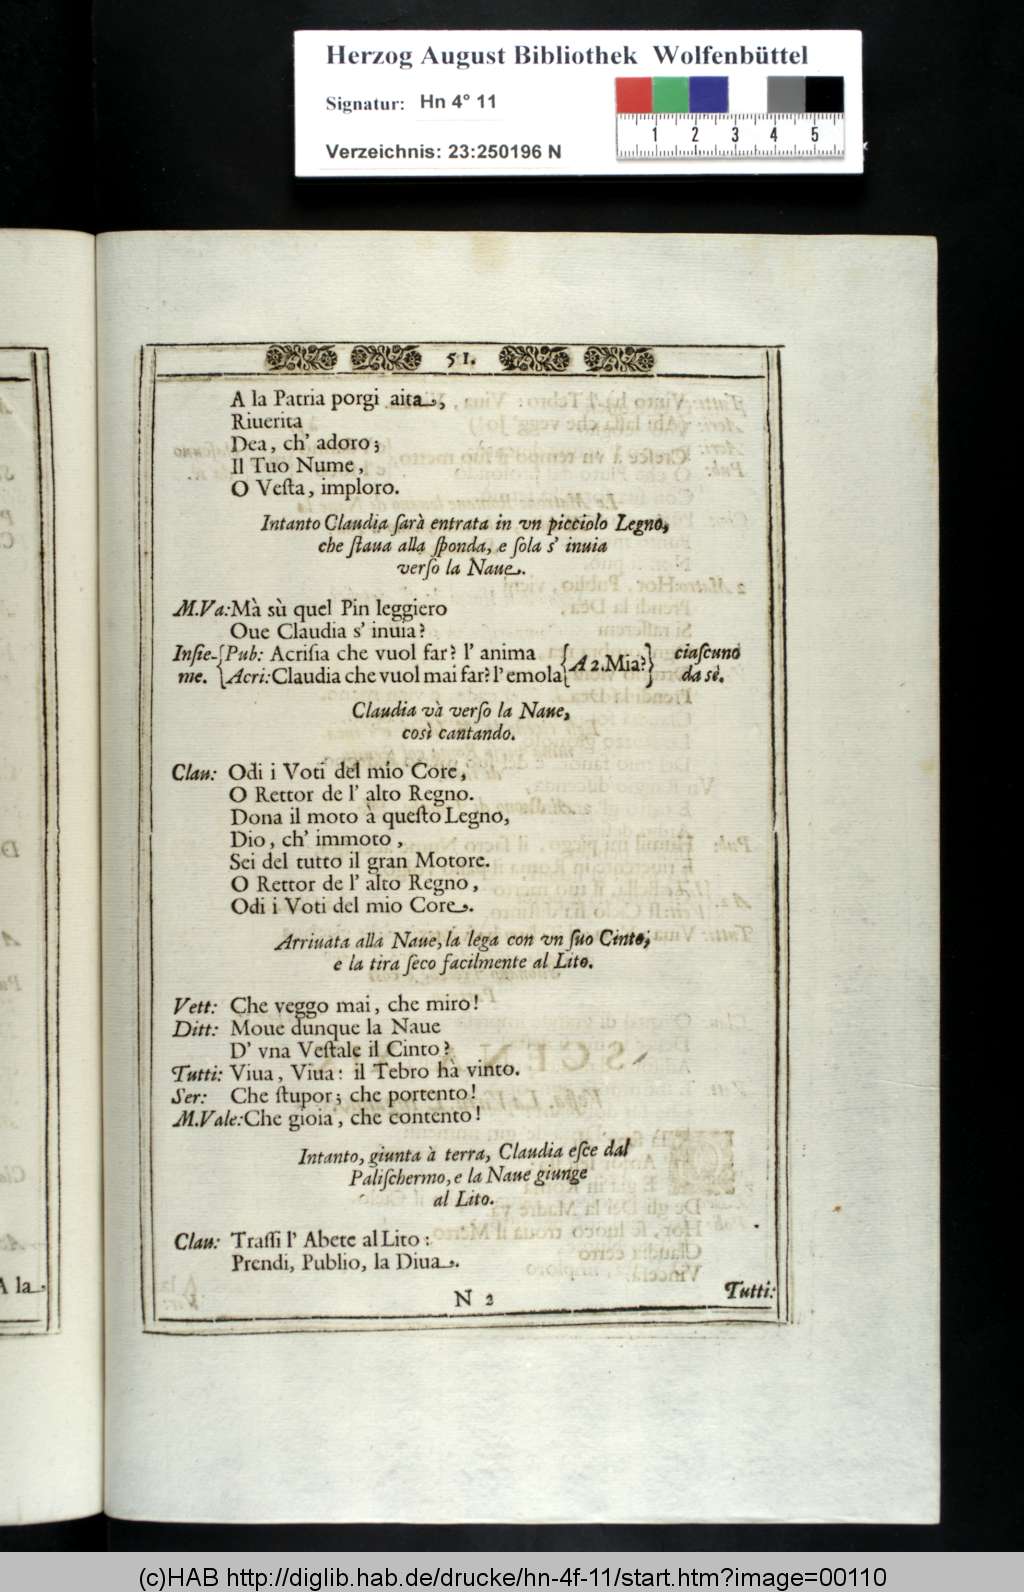 Herzog August Bibliothek Wolfenbüttel
Signatur: Hn 4° 11
Verzeichnis: 23:250196 N
1 2 3 4 5
51.
A la Patria porgi aita,
Riuerita
Dea, ch' adoro;
Il Tuo Nume,
O Veſta, imploro.
Intanto Claudia ſarà entrata in vn picciolo Legno,
che ſtaua alla ſponda, e ſola s' inuia
verſo la Naue.
M.Va: Mà sù quel Pin leggiero
Oue Claudia s' inuia?
Inſie- { Pub: Acriſia che vuol far? l' anima { A 2. Mia? } ciaſcuno
me. { Acri: Claudia che vuol mai far? l' emola { } da sè.
Claudia và verſo la Naue,
così cantando.
Clau: Odi i Voti del mio Core,
O Rettor de l' alto Regno.
Dona il moto à queſto Legno,
Dio, ch' immoto,
Sei del tutto il gran Motore.
O Rettor de l' alto Regno,
Odi i Voti del mio Core.
Arriuata alla Naue, la lega con vn ſuo Cinto,
e la tira ſeco facilmente al Lito.
Vett: Che veggo mai, che miro!
Ditt: Moue dunque la Naue
D' vna Veſtale il Cinto?
Tutti: Viua, Viua: il Tebro hà vinto.
Ser: Che ſtupor; che portento!
M.Vale: Che gioia, che contento!
Intanto, giunta à terra, Claudia eſce dal
Paliſchermo, e la Naue giunge
al Lito.
Clau: Traſſi l' Abete al Lito:
Prendi, Publio, la Diua.
N 2
Tutti:
A la
(c)HAB http://diglib.hab.de/drucke/hn-4f-11/start.htm?image=00110